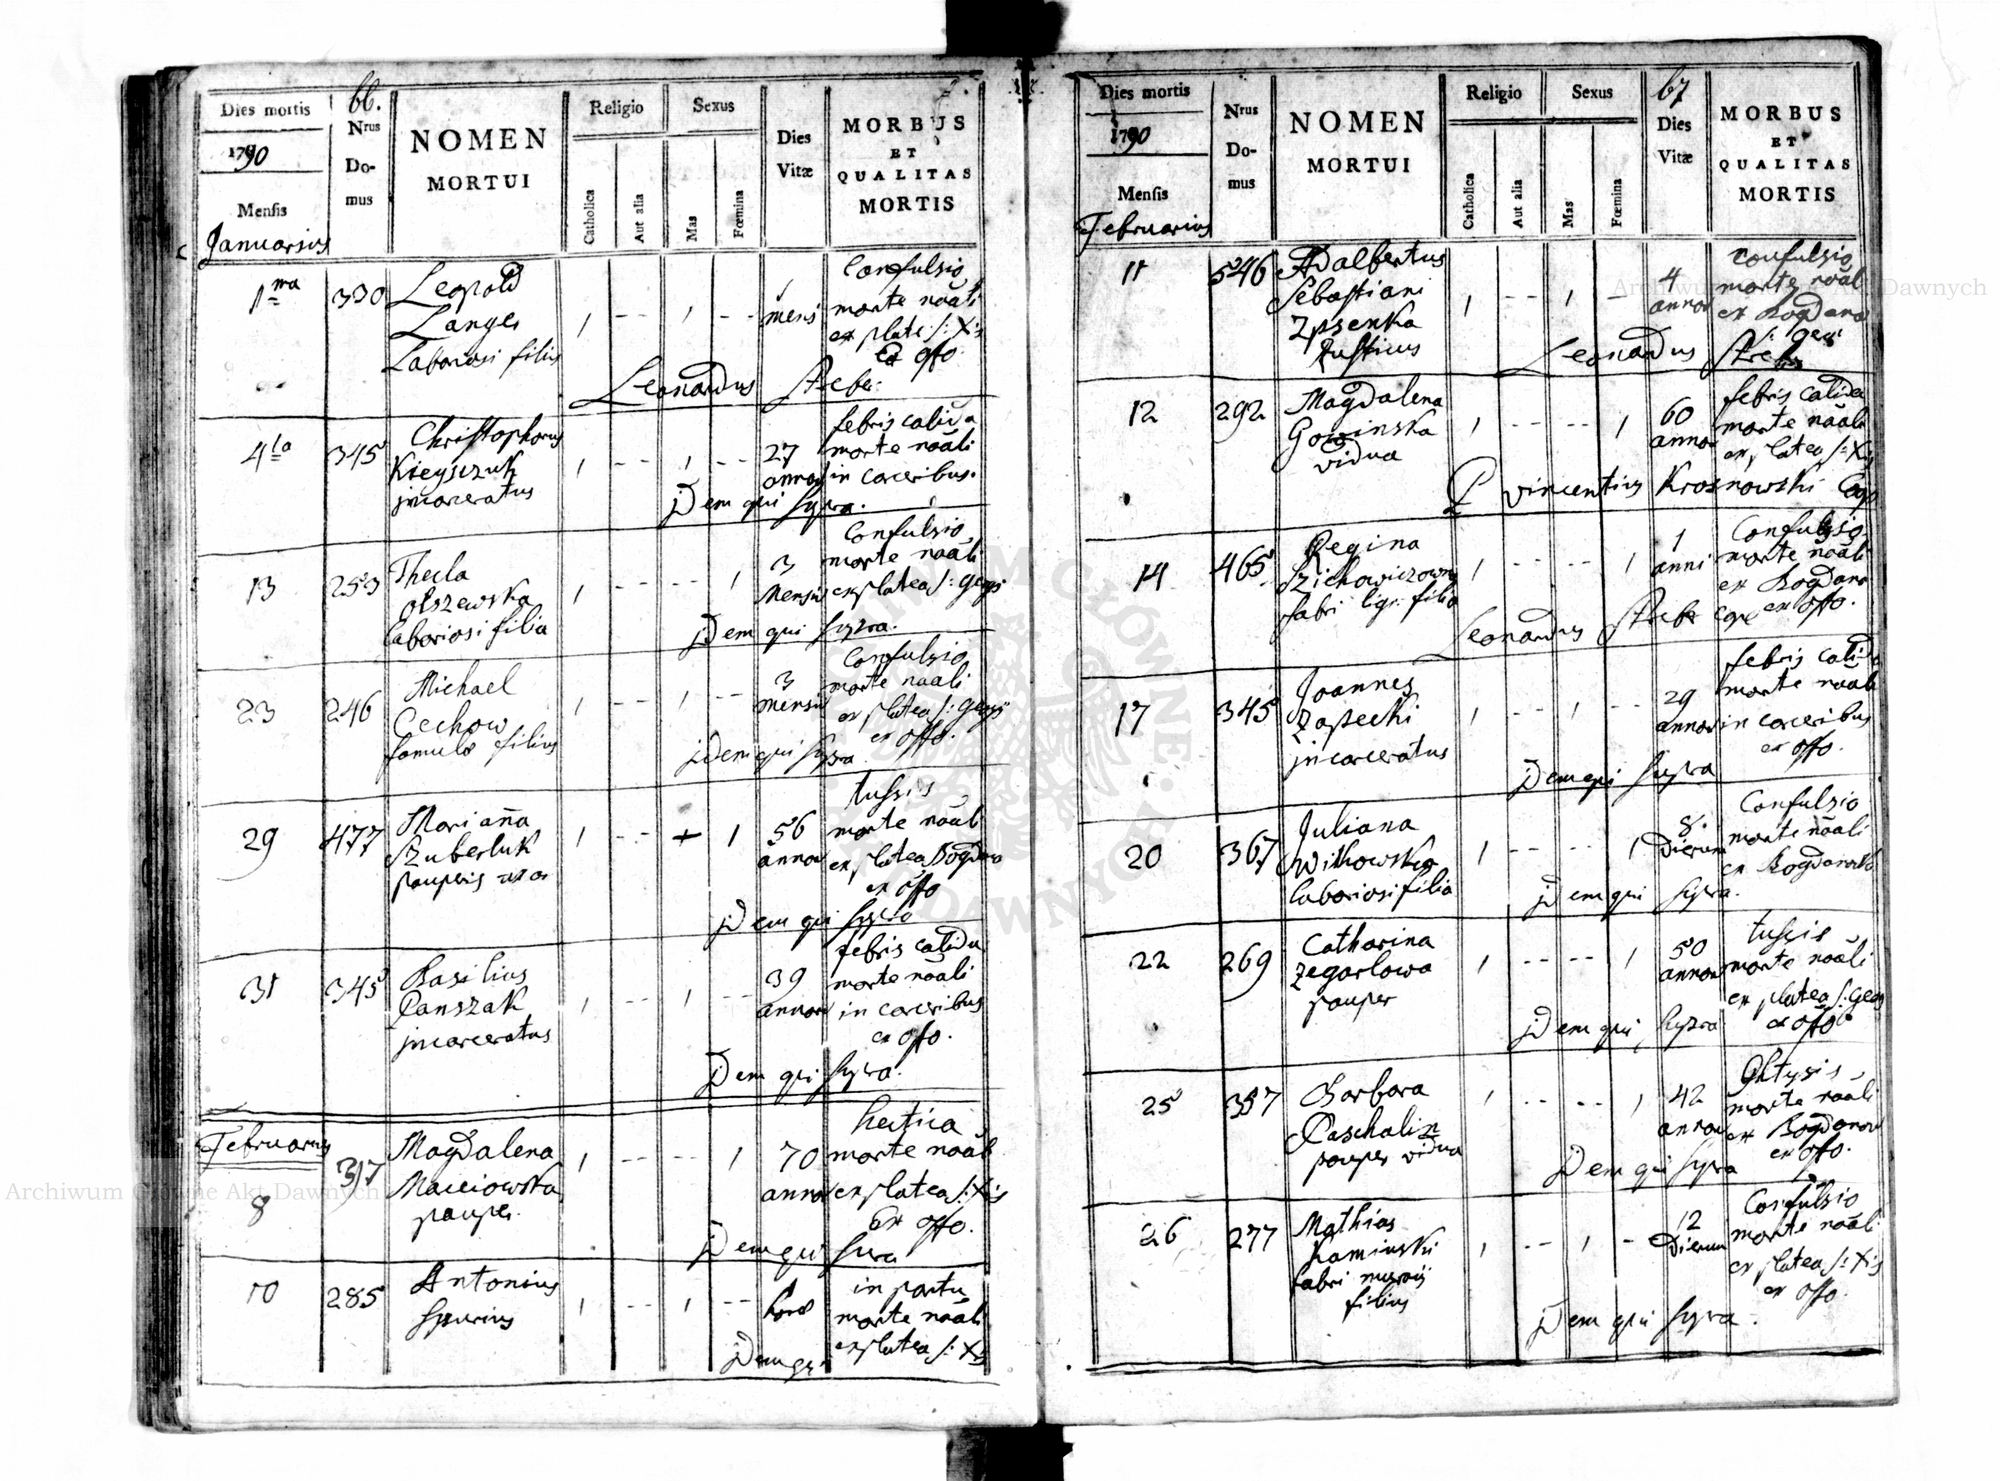 66.
Dies mortis
1790
Mensis
Januarius
Nrus
Do-
mus
NOMEN
MORTUI
Religio
Catholica
Aut alia
Sexus
Mas
Fœmina
Dies
Vitæ
MORBUS
ET
QUALITAS
MORTIS
1ma 330 Leopold
Langer
Laboriosi filius
1 -- 1 -- 1
mens
Confulsio
morte nãali
ex platea S: Xis
Ex offo.
Leonardus Strebe:
4ta 345 Christophorus
incarceratus
1 -- 1 -- 27
annor
febris calida
morte nãali
in carceribus.
Idem qui supra.
13 253 Thecla
Olszewska
laboriosi filia
1 -- -- 1 3
Mensiu
Confulsio
morte nãali
ex platea S: Geys
Idem qui supra.
23 246 Michael
Cechow
famulo filius
1 -- 1 -- 3
mensiu
Confulsio
morte naali
ex platea S: Geys
ex offo.
Idem qui supra
29 477 Marianna
Szuberluk
pauperis
1 -- + 1 56
annor
tussis
morte nãali
ex platea Bogdano
ex offo
Idem qui supra
31 345 Basilius
Panszak
incarceratus
1 -- 1 -- 39
annor
febris calida
morte nãali
in carceribus
ex offo.
Idem qui supra.
Februarius
8 317 Magdalena
Maciowska
pauper.
1 -- -- 1 70
annor
hectica
morte nãali
ex platea S: Xis
Ex offo.
Idem qui supra
10 285 Antonius
Spurius
1 -- 1 --
in partu
morte nãali
ex platea S: Xis
Idem qui
67
Dies mortis
1790
Mensis
Februarius
Nrus
Do-
mus
NOMEN
MORTUI
Religio
Catholica
Aut alia
Sexus
Mas
Fœmina
Dies
Vitæ
MORBUS
ET
QUALITAS
MORTIS
11 546 Adalbertus
Sebastiani
1 -- 1 - 4
annor
Confulsio
morte nãali
ex Bogdano
Leonardus Strebe
12 292 Magdalena
Gowinska
vidua
1 -- -- 1 60
annor
febris calida
morte nãali
ex platea S: Xis
P Vincentius Krosnowski Coop
14 465 Regina
Szichowiczowny
fabri lig: filia
1 -- -- 1 1
anni
Confulsio
morte nãali
ex Bogdano
ex offo.
Leonardus Strebe
17 345 Joannes
Zasecki
incarceratus
1 -- 1 -- 29
annor
febris calida
morte nãali
in carceribus
ex offo.
Idem qui supra
20 367 Juliana
Witkowska
laboriosi filia
1 -- -- 1 8.
Dierum
Confulsio
morte nãali
ex Bogdanowki
Idem qui supra.
22 269 Catharina
Zegarlowa
pauper
1 -- -- 1 50
annor
tussis
morte nãali
ex platea S: Geys
ex offo
Idem qui supra
25 357 Barbara
Paschalin
pauper vidua
1 -- -- 1 42
annor
Phtysis
morte nãali
ex Bogdanow
ex offo.
Idem qui supra
26 277 Mathias
Kaminski
fabri murarij
filius
1 -- 1 - 12
Dierum
Confulsio
morte nãali
ex platea S: Xis
ex offo.
Idem qui supra.
Archiwum Główne Akt Dawnych
Archiwum Główne Akt Dawnych
ARCHIWUM GŁÓWNE AKT DAWNYCH